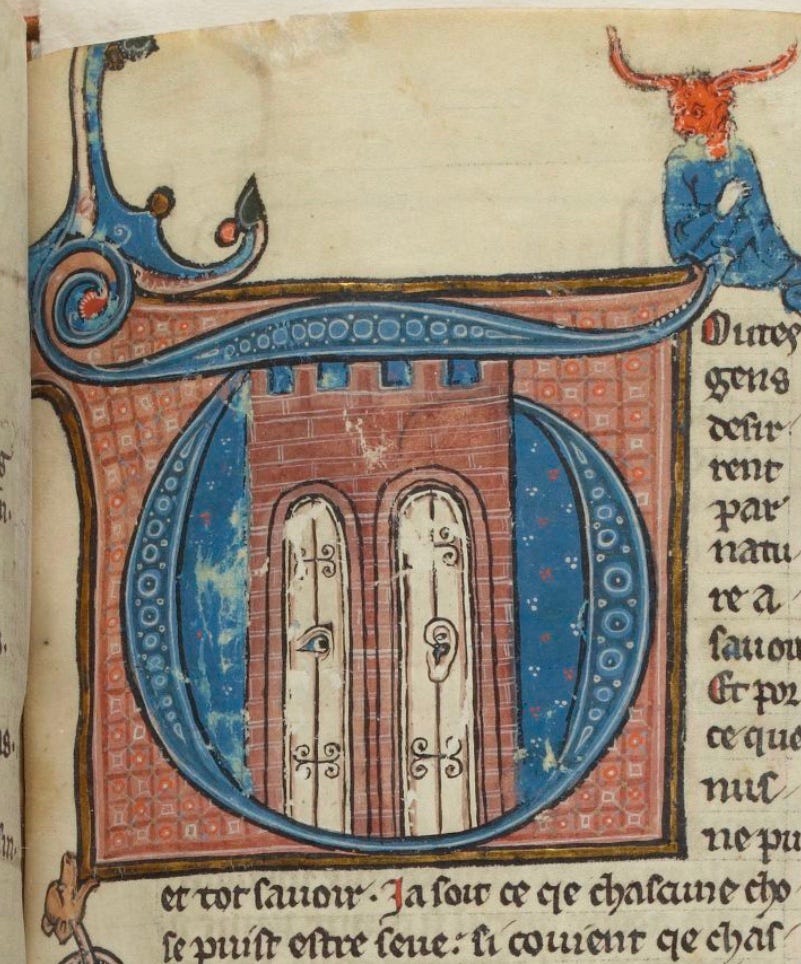 Outes
gens
desir
rent
par
natu
re a
sauoir
Et por
ce que
nus
ne pu
et tot sauoir. Ja soit ce qe chascune cho
se puist estre seue: si couient qe chas